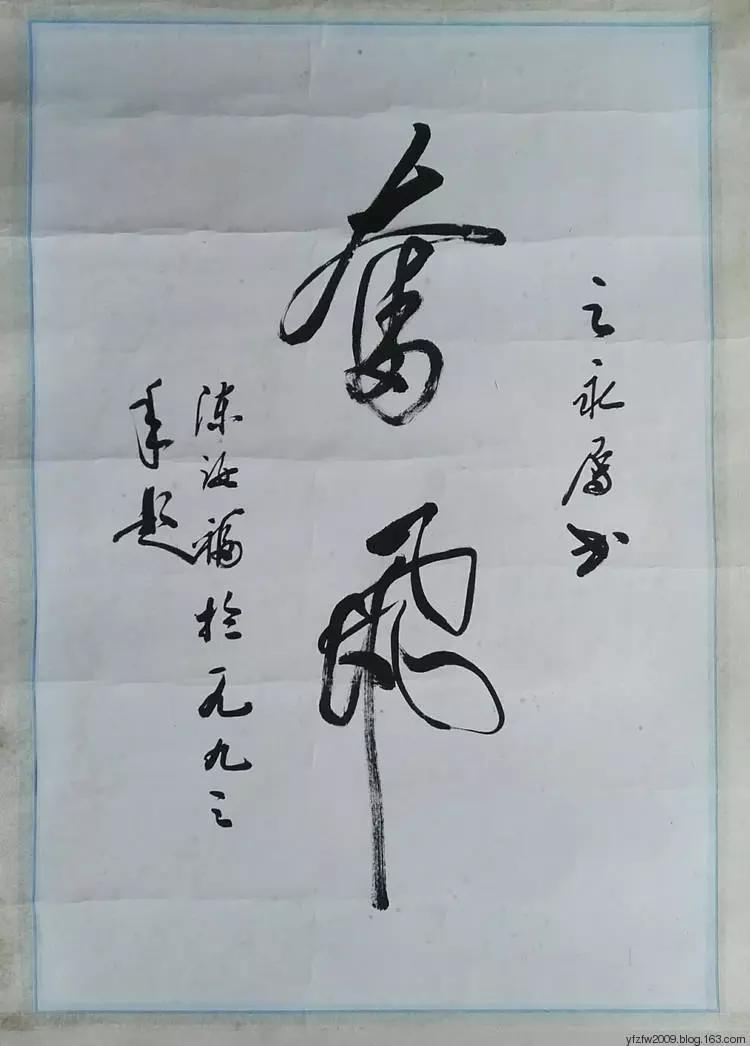 之永属书
奮飛
陈汝福於一九九三
年题
yfzfw2009.blog.163.com